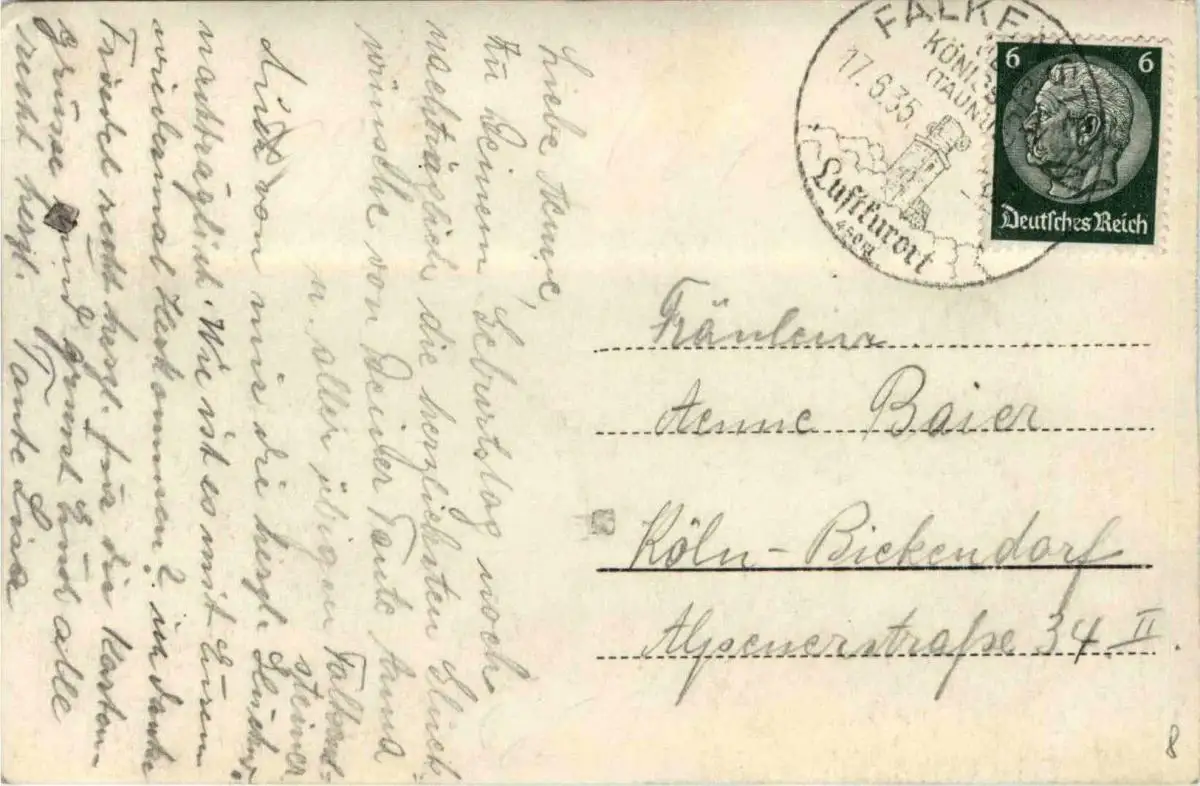 Liebe Aenne,
Zu Deinem Geburtstag noch
nachträglich die herzlichsten Glück-
wünsche von Deiner Tante Anna
u. allen übigen Falken-
steiner
Auch von mir die herzl. Glückw.
nachträglich. Wie ist es mit Eurem
widermal Herkommen? ich danke
Fried recht herzl. für die Karten-
grüsse und grüsst Euch alle
recht herzl. Tante Lisa
FALKE
KÖNIGS
(TAUNU
17.6.35.
Luftkurort
450 m
6 6
Deutsches Reich
Fräulein
Aenne Baier
Köln - Bickendorf
Alpenerstraße 34 II
8